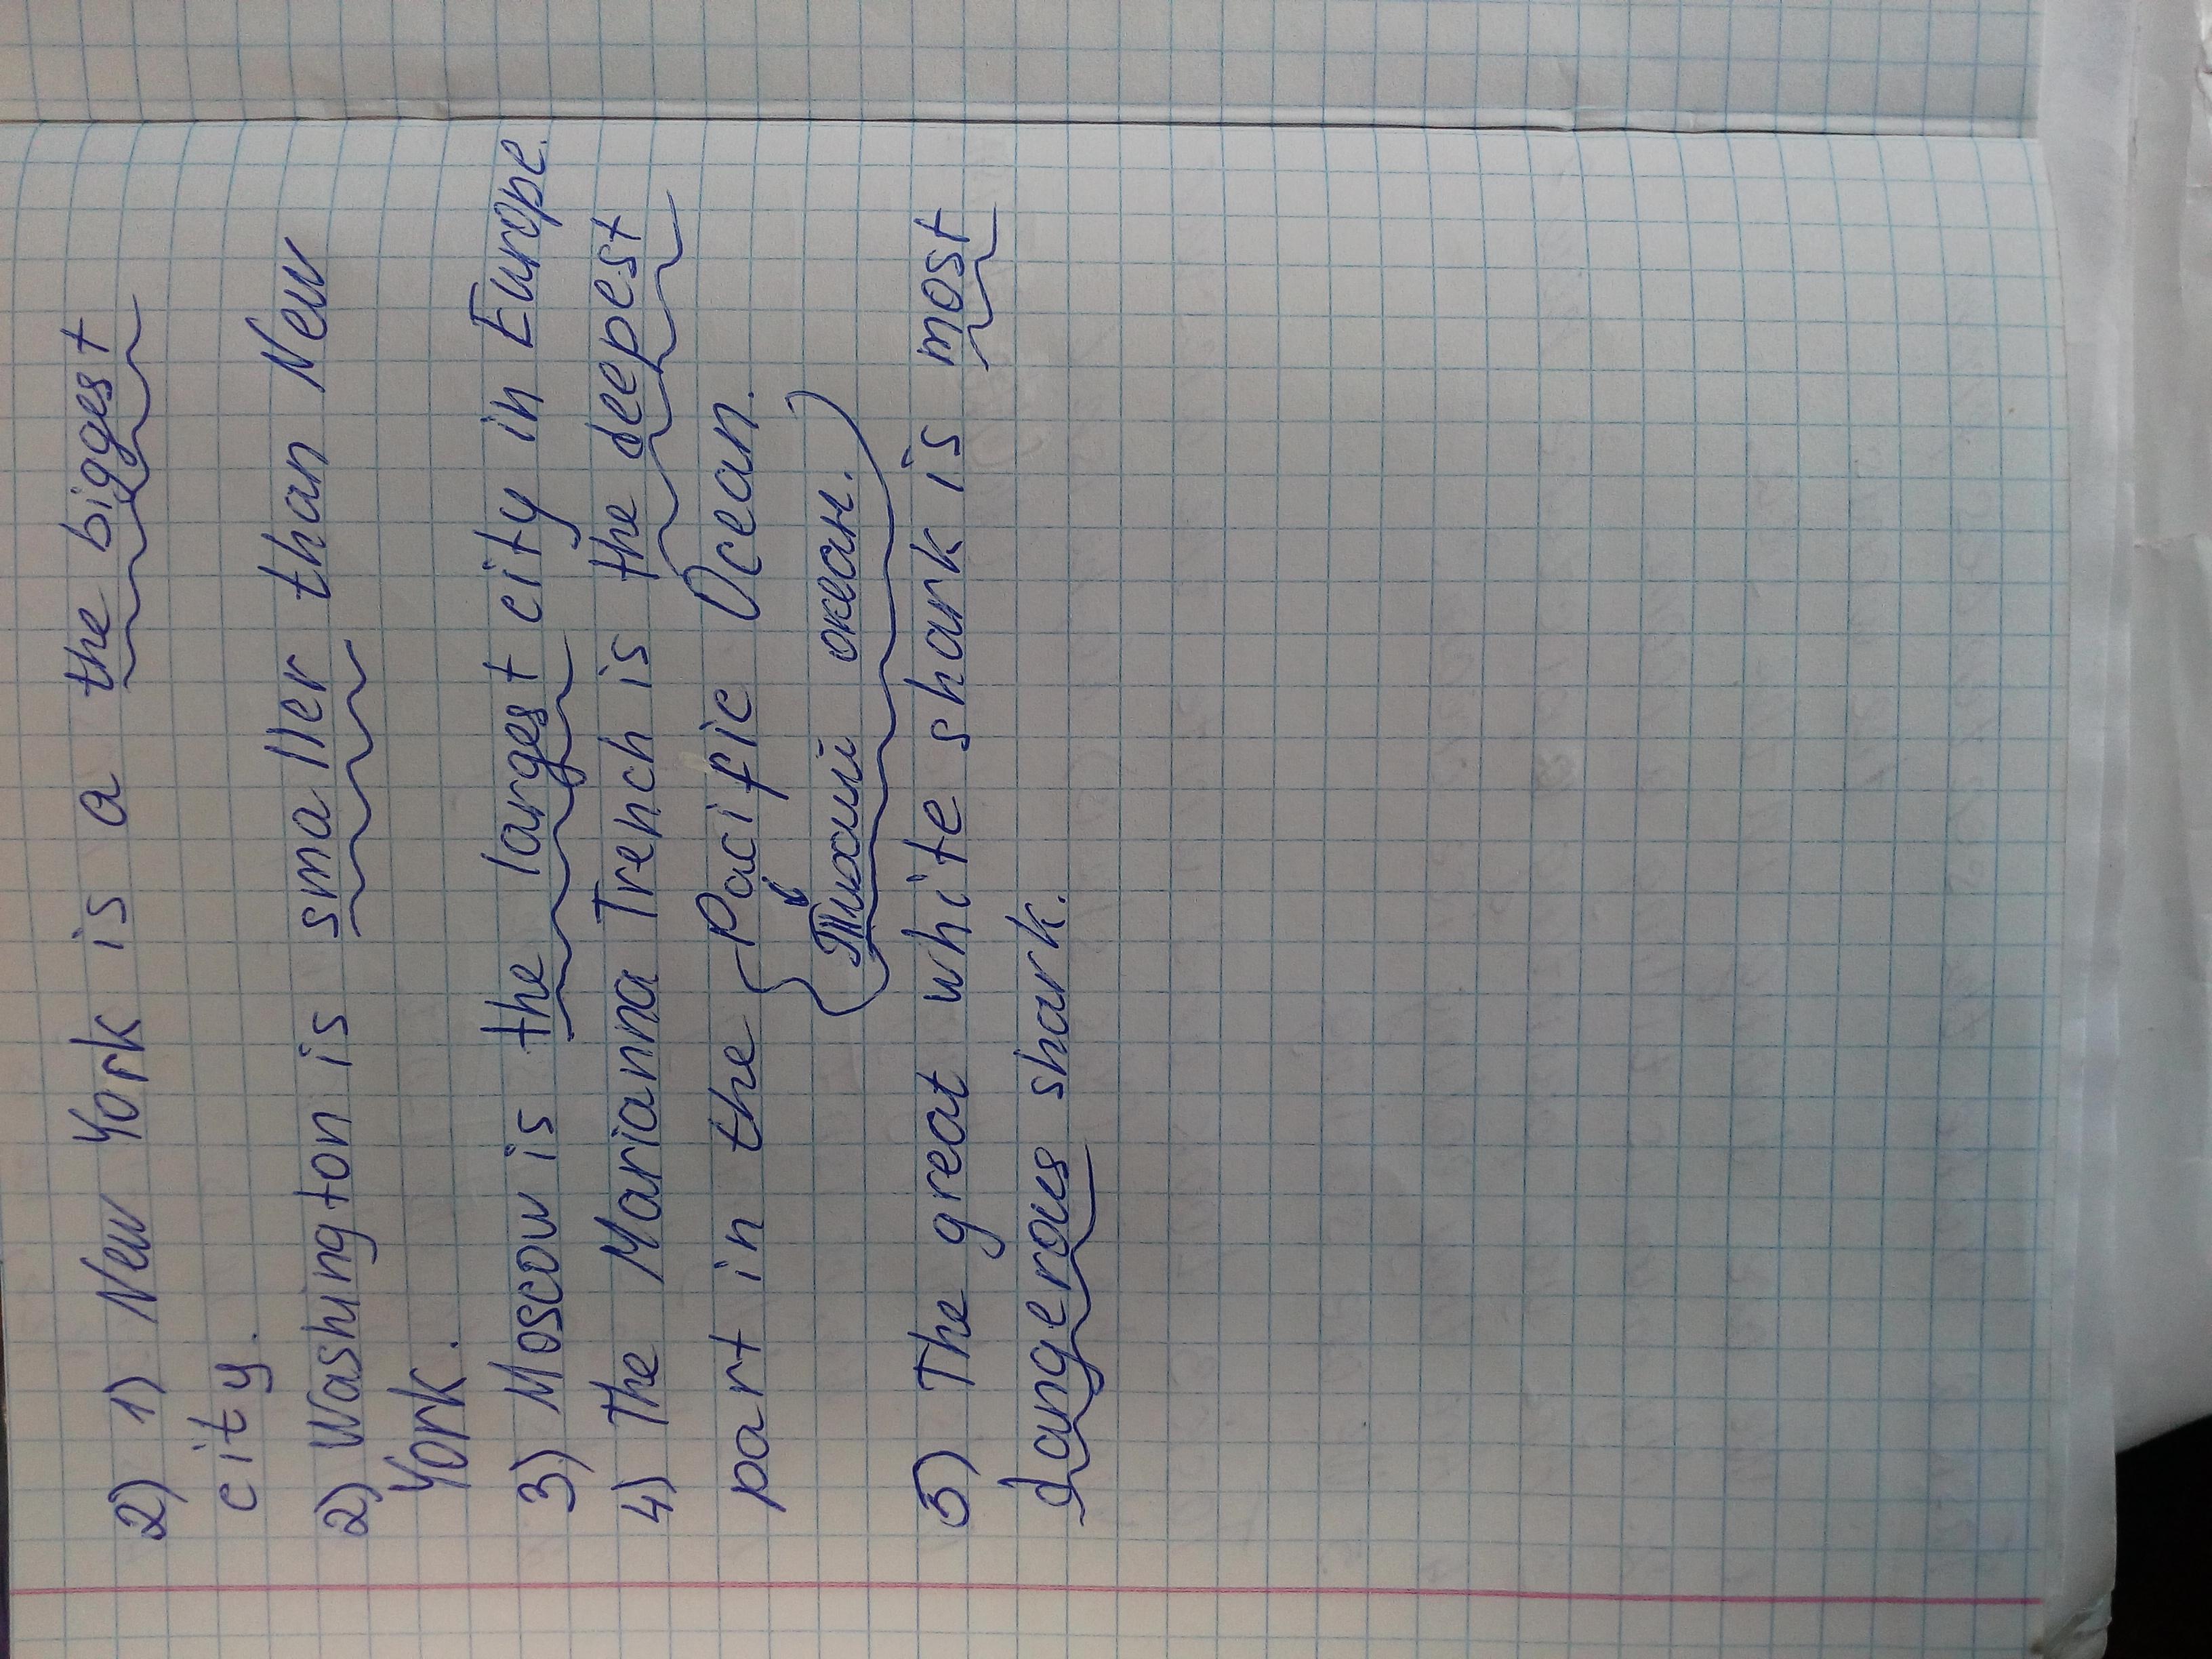 2) 1) New York is a the biggest
city.
2) Washington is smaller than New
York.
3) Moscow is the largest city in Europe.
4) The Marianna Trench is the deepest
part in the Pacific Ocean.
Тихий океан.
5) The great white shark is most
dangerous shark.